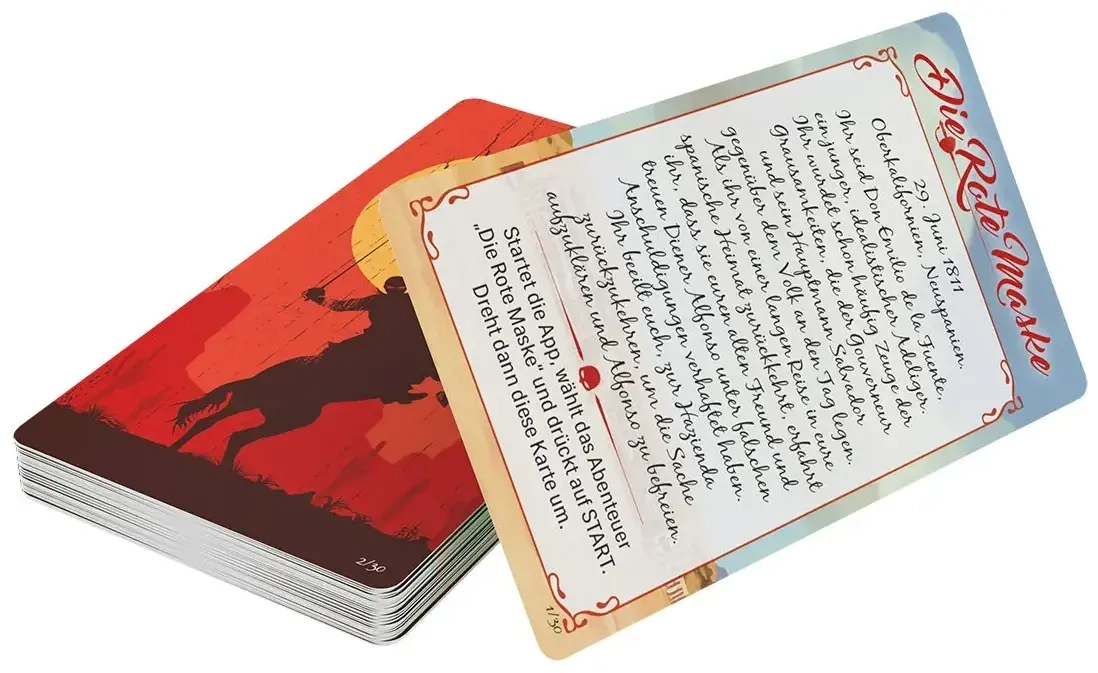 Die Rote Maske
29. Juni 1811
Oberkalifornien, Neuspanien.
Ihr seid Don Emilio de la Fuente,
ein junger, idealistischer Adeliger.
Ihr wurdet schon häufig Zeuge der
Grausamkeiten, die der Gouverneur
und sein Hauptmann Salvador
gegenüber dem Volk an den Tag legen.
Als ihr von einer langen Reise in eure
spanische Heimat zurückkehrt, erfahrt
ihr, dass sie euren alten Freund und
treuen Diener Alfonso unter falschen
Anschuldigungen verhaftet haben.
Ihr beeilt euch, zur Hazienda
zurückzukehren, um die Sache
aufzuklären und Alfonso zu befreien.
Startet die App, wählt das Abenteuer
„Die Rote Maske" und drückt auf START.
Dreht dann diese Karte um.
1/30
2/30